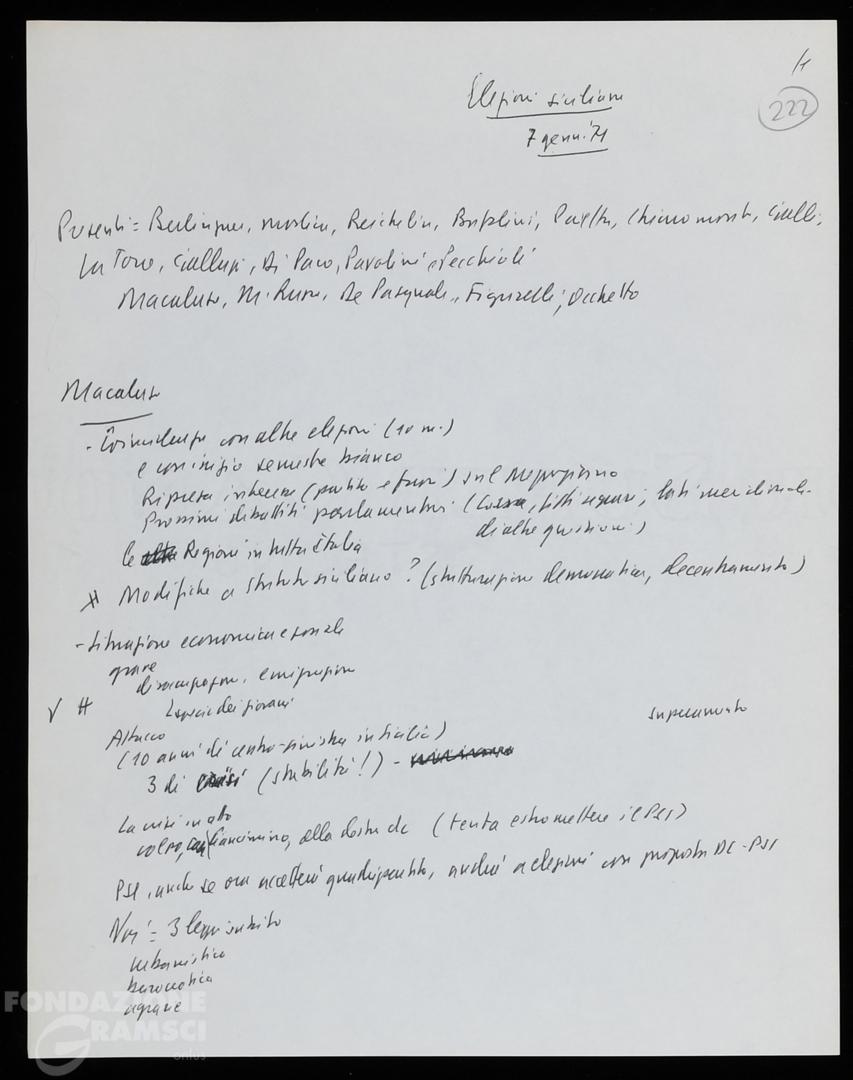 /1
222
Elezioni siciliane
7 genn. '71
Presenti = Berlinguer, Reichlin, Bufalini, Pajetta, Chiaromonte, Cialli,
La Torre, Galluzzi, Di Paco, Pavolini e Pecchioli
Macaluso, M. Russo, De Pasquale, Figurelli, Occhetto
Macaluso
- Coincidenza con altre elezioni (10 m.)
e con inizio semestre bianco
Ripresa interesse (partito e fuori) sul Mezzogiorno
Prossimi dibattiti parlamentari (Cassa, fitti agrari, lati meridionali
di altre questioni)
le Regioni in tutta Italia
# Modifiche a Statuto siciliano? (strutturazione democratica, decentramento)
- Situazione economica e sociale
grave
disoccupazione, emigrazione
√ # Specie dei giovani
Attacco
(10 anni di centro-sinistra in Sicilia)
3 di crisi (stabilità!) -
superamento
La crisi in atto
colpo, con Ciancimino, alla destra dc (tenta estromettere il PSI)
PSI, anche se ora accetterà quadripartito, andrà a elezioni con proposta DC-PSI
Noi = 3 leggi subito
urbanistica
burocratica
agrarie
FONDAZIONE
GRAMSCI
onlus